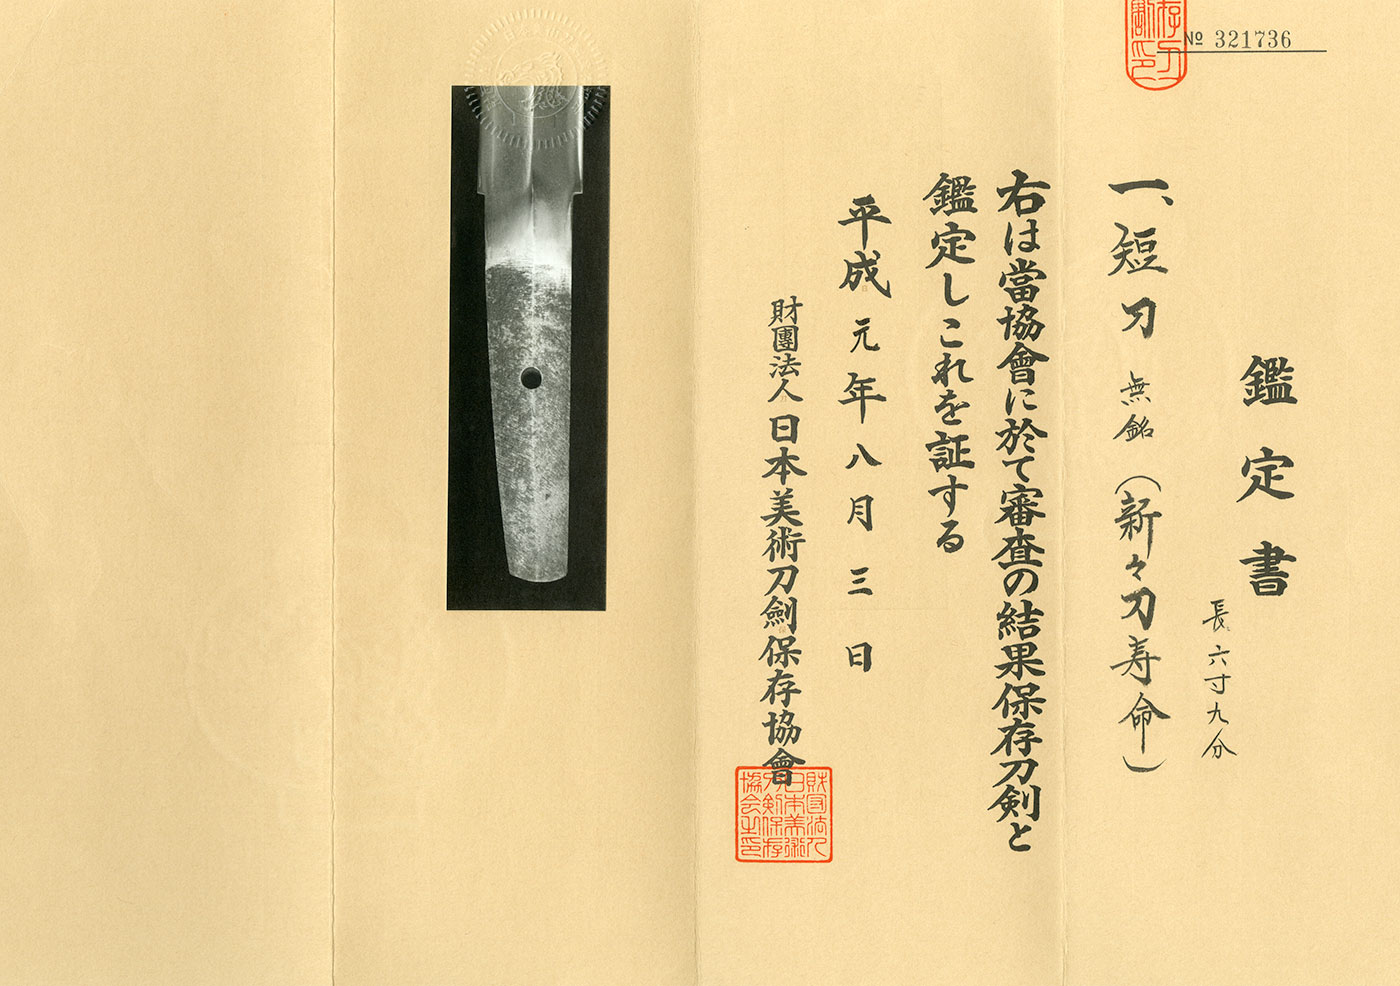 № 321736
鑑定書
長六寸九分
一、短刀 無銘(新々刀寿命)
右は當協會に於て審査の結果保存刀剣と
鑑定しこれを証する
平成元年八月三日
財團法人日本美術刀劍保存協會
財団法人
日本美術
刀剣保存
協会之印